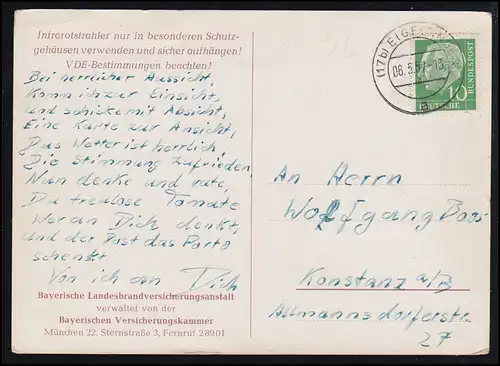 Infrarotstrahler nur in besonderen Schutz-
gehäusen verwenden und sicher aufhängen!
VDE-Bestimmungen beachten!
Bei herrlicher Aussicht,
Komm ich zur Einsicht,
und schicke mit Absicht,
Eine Karte zur Ansicht,
Das Wetter ist herrlich,
Die Stimmung zufrieden,
Nun denke und rate,
Du treulose Tomate
Wer an Dich denkt,
und der Post das Porto
schenkt
Von ich an Dich
Bayerische Landesbrandversicherungsanstalt
verwaltet von der
Bayerischen Versicherungskammer
München 22, Sternstraße 3, Fernruf 28901
(17b)
06.5.5
DEUTSCHE BUNDESPOST
10
An Herrn
Wolfgang
Konstanz a/B
Allmannsdorferstr.
27